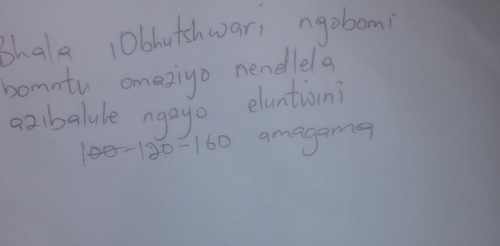 Bhala iObhutshwari ngobomi
bomntu omaziyo nendlela
azibalule ngayo eluntwini
100-120-160 amagama